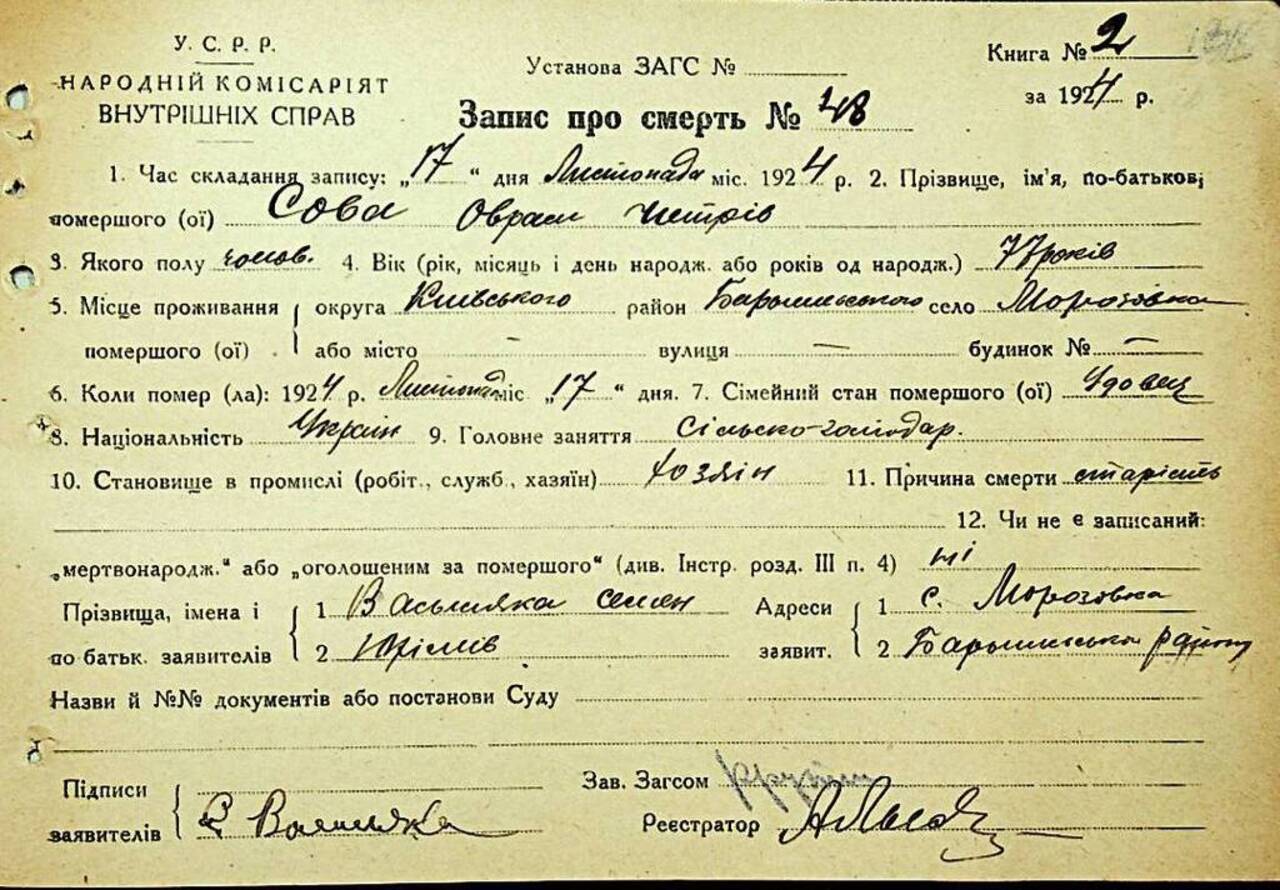 У. С. Р. Р.
НАРОДНІЙ КОМІСАРІЯТ
ВНУТРІШНІХ СПРАВ
Установа ЗАГС №
Книга № 2
за 1924 р.
Запис про смерть № 48
1. Час складання запису: „17“ дня Листопада міс. 1924 р. 2. Прізвище, ім'я, по-батькові
помершого (ої) Сова Оврам Петрів
3. Якого полу чолов. 4. Вік (рік, місяць і день народж. або років од народж.) 77 років
5. Місце проживання округа Київського район Баришевського село Морозовка
помершого (ої) або місто — вулиця — будинок № —
6. Коли помер (ла): 1924 р. Листопад міс „17“ дня. 7. Сімейний стан помершого (ої) Удовец
8. Національність Україн 9. Головне заняття Сільсько-господар.
10. Становище в промислі (робіт., служб., хазяїн) Хозяін 11. Причина смерти старість
12. Чи не є записаний:
„мертвонародж.“ або „оголошеним за помершого“ (див. Інстр. розд. III п. 4) ні
Прізвища, імена і 1 Семен Адреси 1 с. Морозовка
по батьк. заявителів 2 заявит. 2 району
Назви й №№ документів або постанови Суду
Підписи
заявителів
Зав. Загсом
Реєстратор